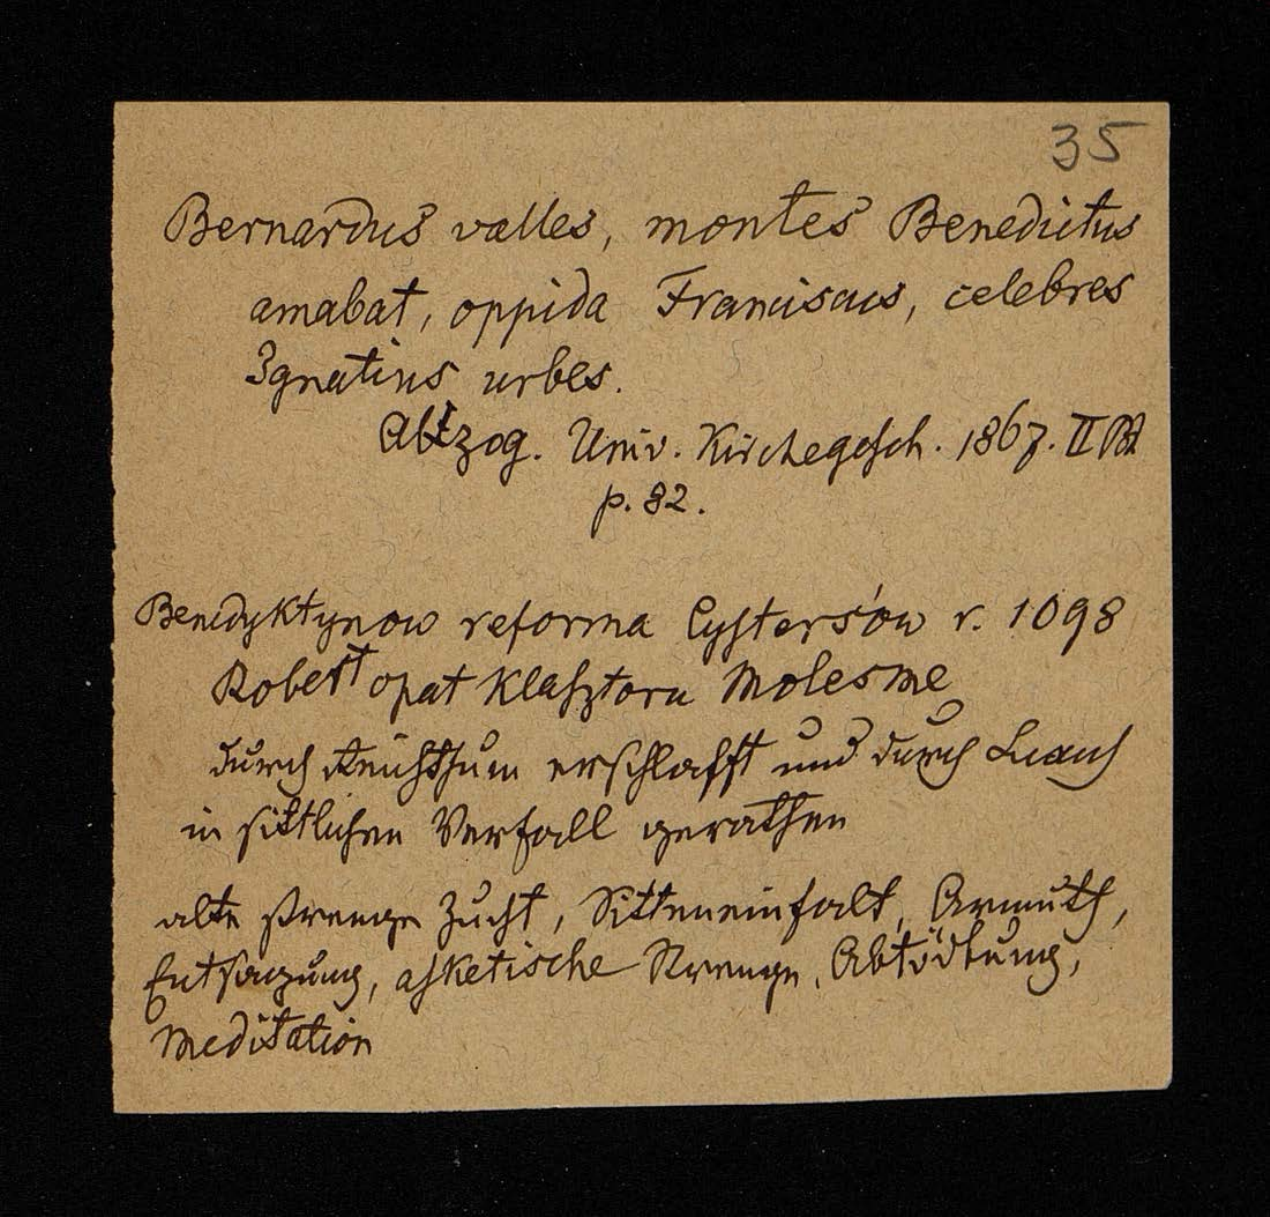 35
Bernardus valles, montes Benedictus
amabat, oppida Franciscus, celebres
Ignatius urbes.
Alzog. Univ. Kirchegesch. 1867. II Bd
p. 82.
Benedyktynow reforma Cystersów r. 1098
Robert opat klasztoru Molesme
durch Reichthum erschlafft und durch
in sittlichen Verfall gerathen
alte strenge Zucht, Sitteneinfalt, Armuth,
Entsagung, asketische Strenge, Abtödtung,
Meditation